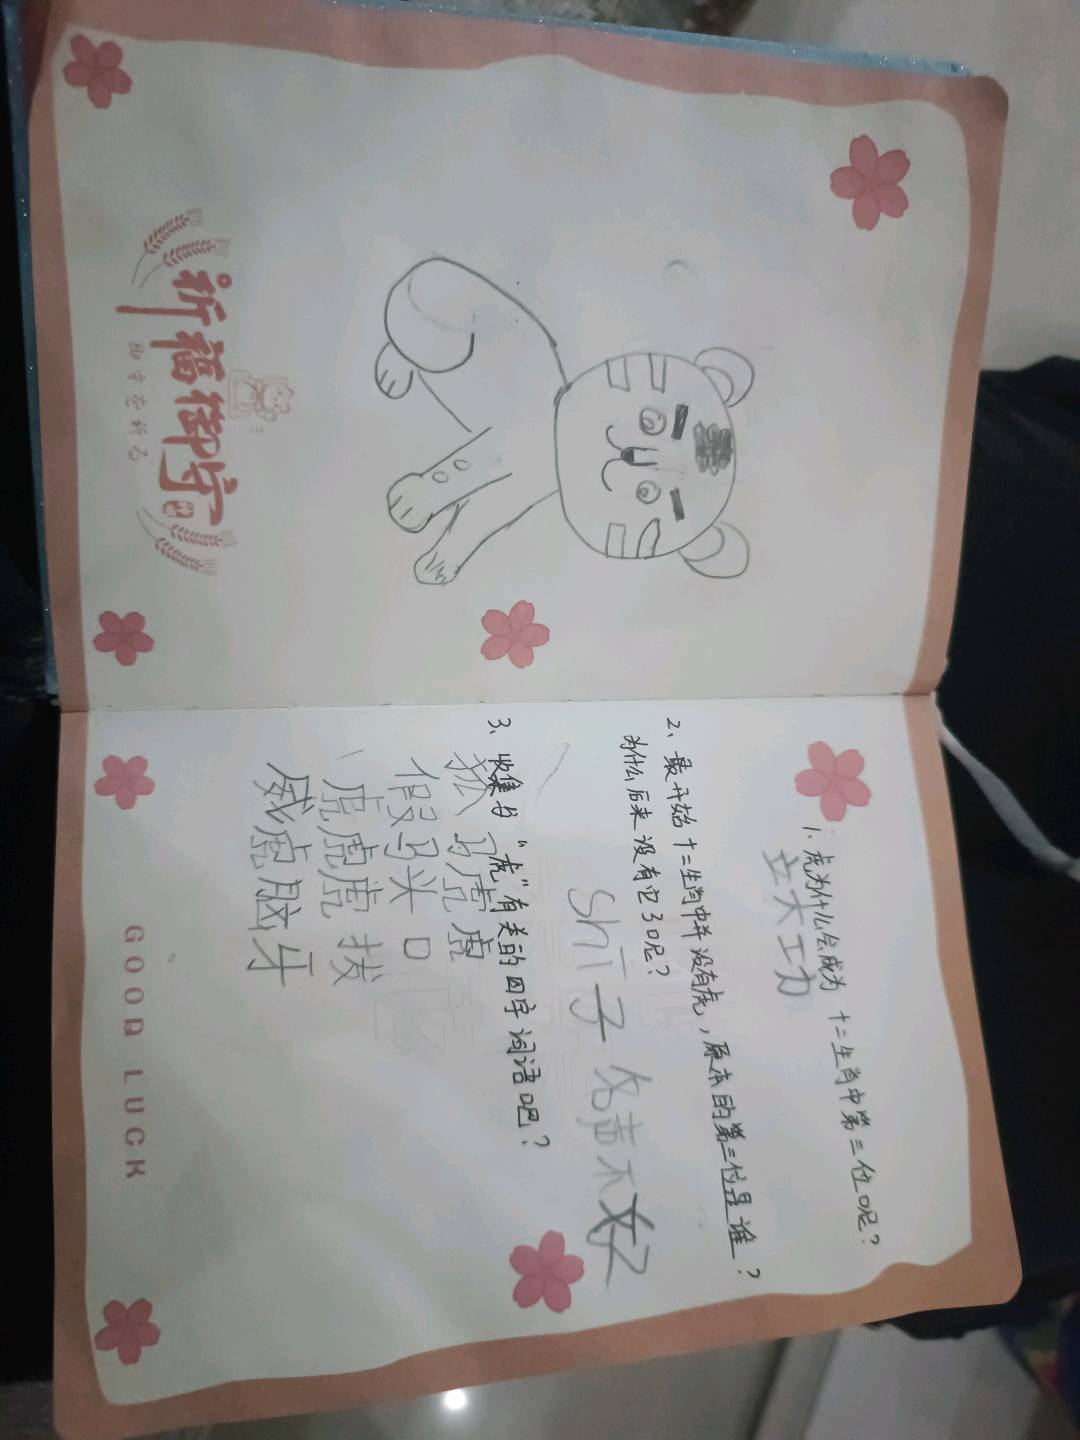 王
祈福御守
1、虎为什么会成为十二生肖中第三位呢?
立大工力
2、最开始十二生肖中并没有虎,原本的第三位是谁?
为什么后来没有它了呢?
shī子 名声不好
3、收集与“虎”有关的四字词语吧?
狐假虎威
马马虎虎
虎头虎脑
虎口拔牙
GOOD LUCK